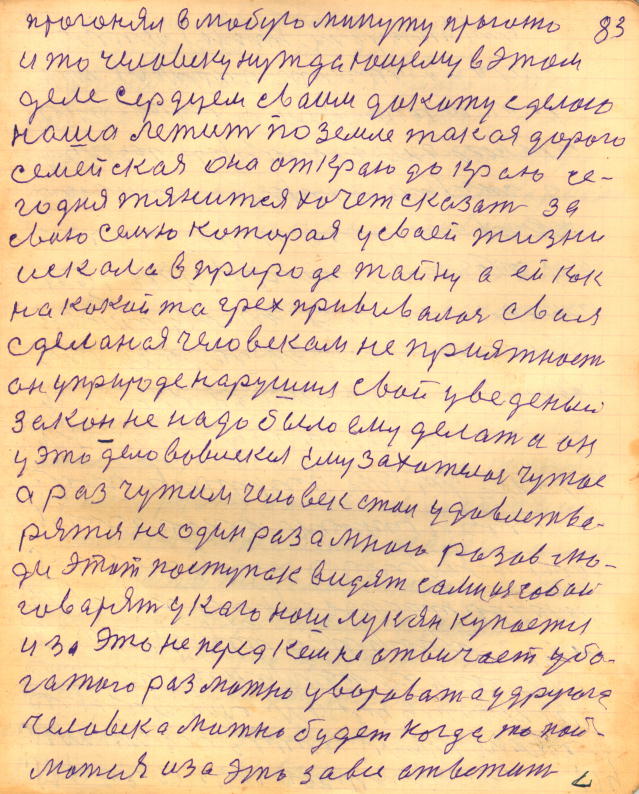 прогонял в любую минуту прогоню 83
и то человеку нуждающему в этом
деле сердцем сваим докожу сделою
наша летит по земле такая дорого
семейская она от краю до краю се-
годня тянится хочет сказат за
сваю семю которая у своей жизни
искала в природе тайну а ей как
на какой та грех прививалоя своя
сделаная человекам не приятност
он у природе нарушил свой уведеный
закон не надо было ему делат а он
у это дело ему захотелоя чужое
а раз чужим человек стал удовлетва-
рятя не один раз а много разов лю-
ди этот поступок видят сами
говарят у каго наш лукян купаетя
и за это не перед кем не отвичает у бо-
гатого раз можно уворовать а у другога
человека можно будет когда то пой-
маться и за это за все ответит